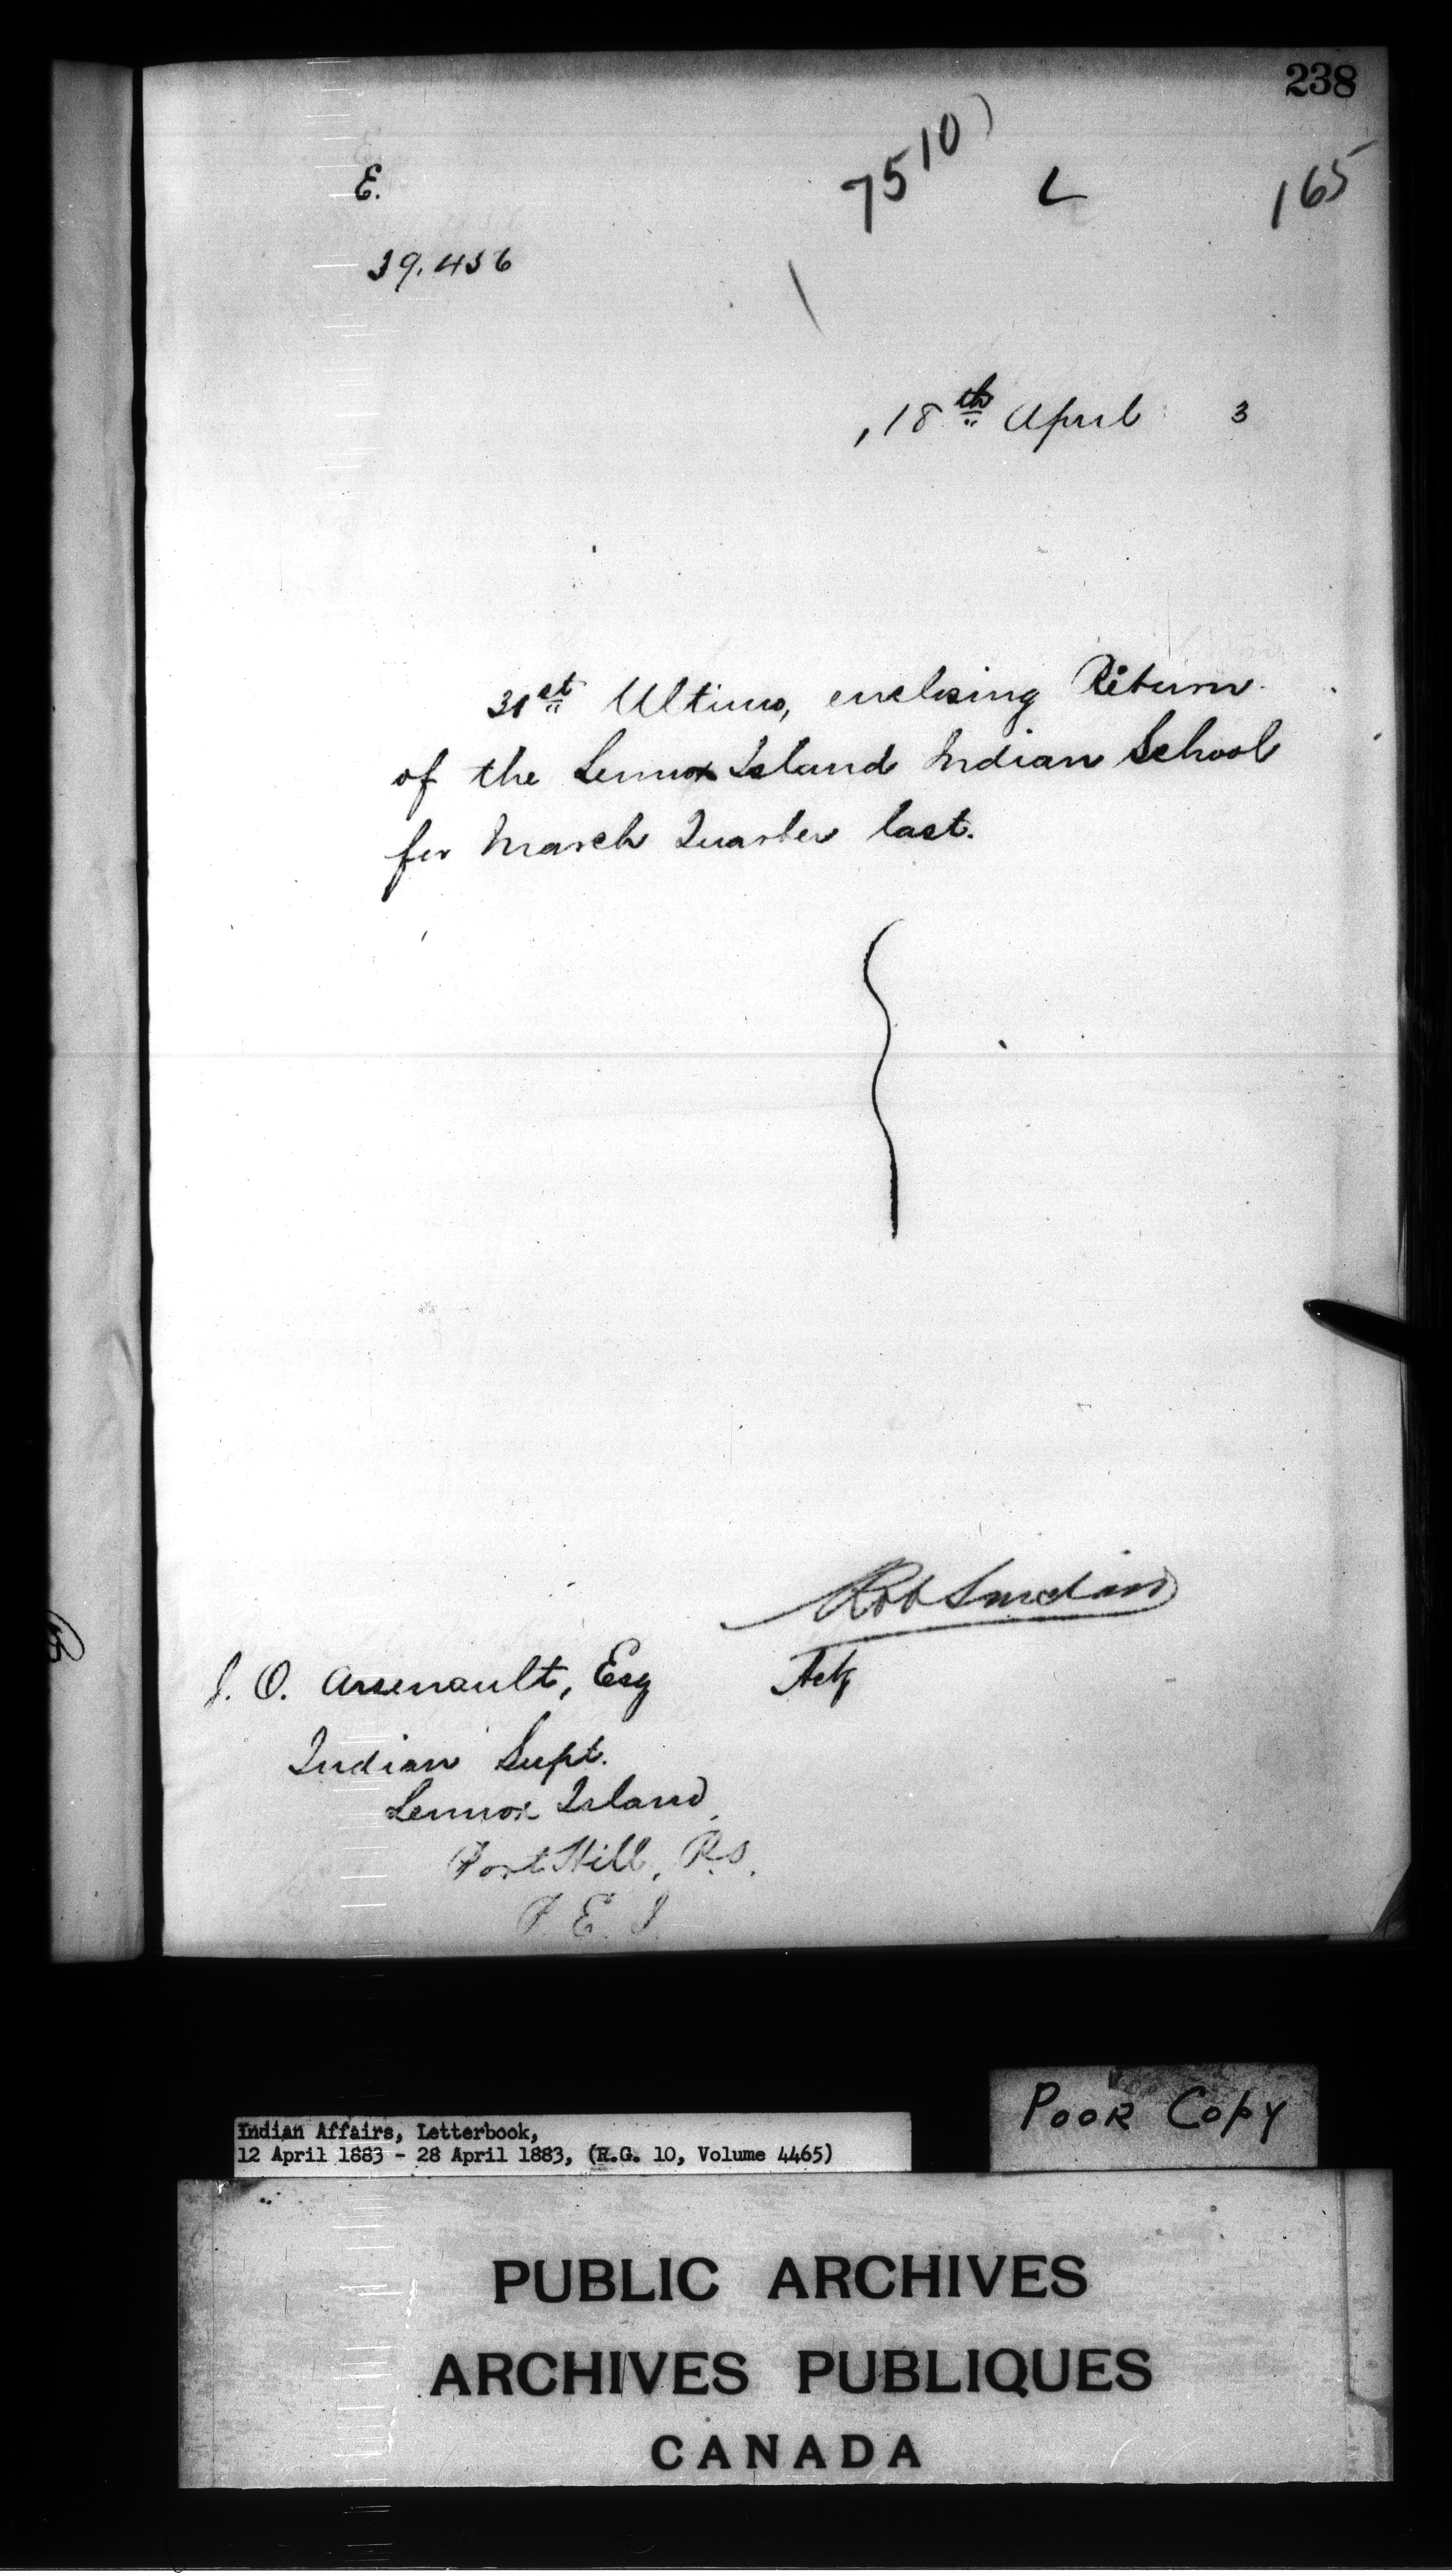 238
7510
E.
L
165
39.456
, 18th April 3
31st Ultimo, enclosing Return
of the Lennox Island Indian School
for March Quarter last.
Rob Sinclair
J. O. Arsenault, Esq
Indian Supt.
Lennox Island
Port Hill, P.O.
P. E. I
Poor Copy
Indian Affairs, Letterbook,
12 April 1883 - 28 April 1883, (R.G. 10, Volume 4465)
PUBLIC ARCHIVES
ARCHIVES PUBLIQUES
CANADA